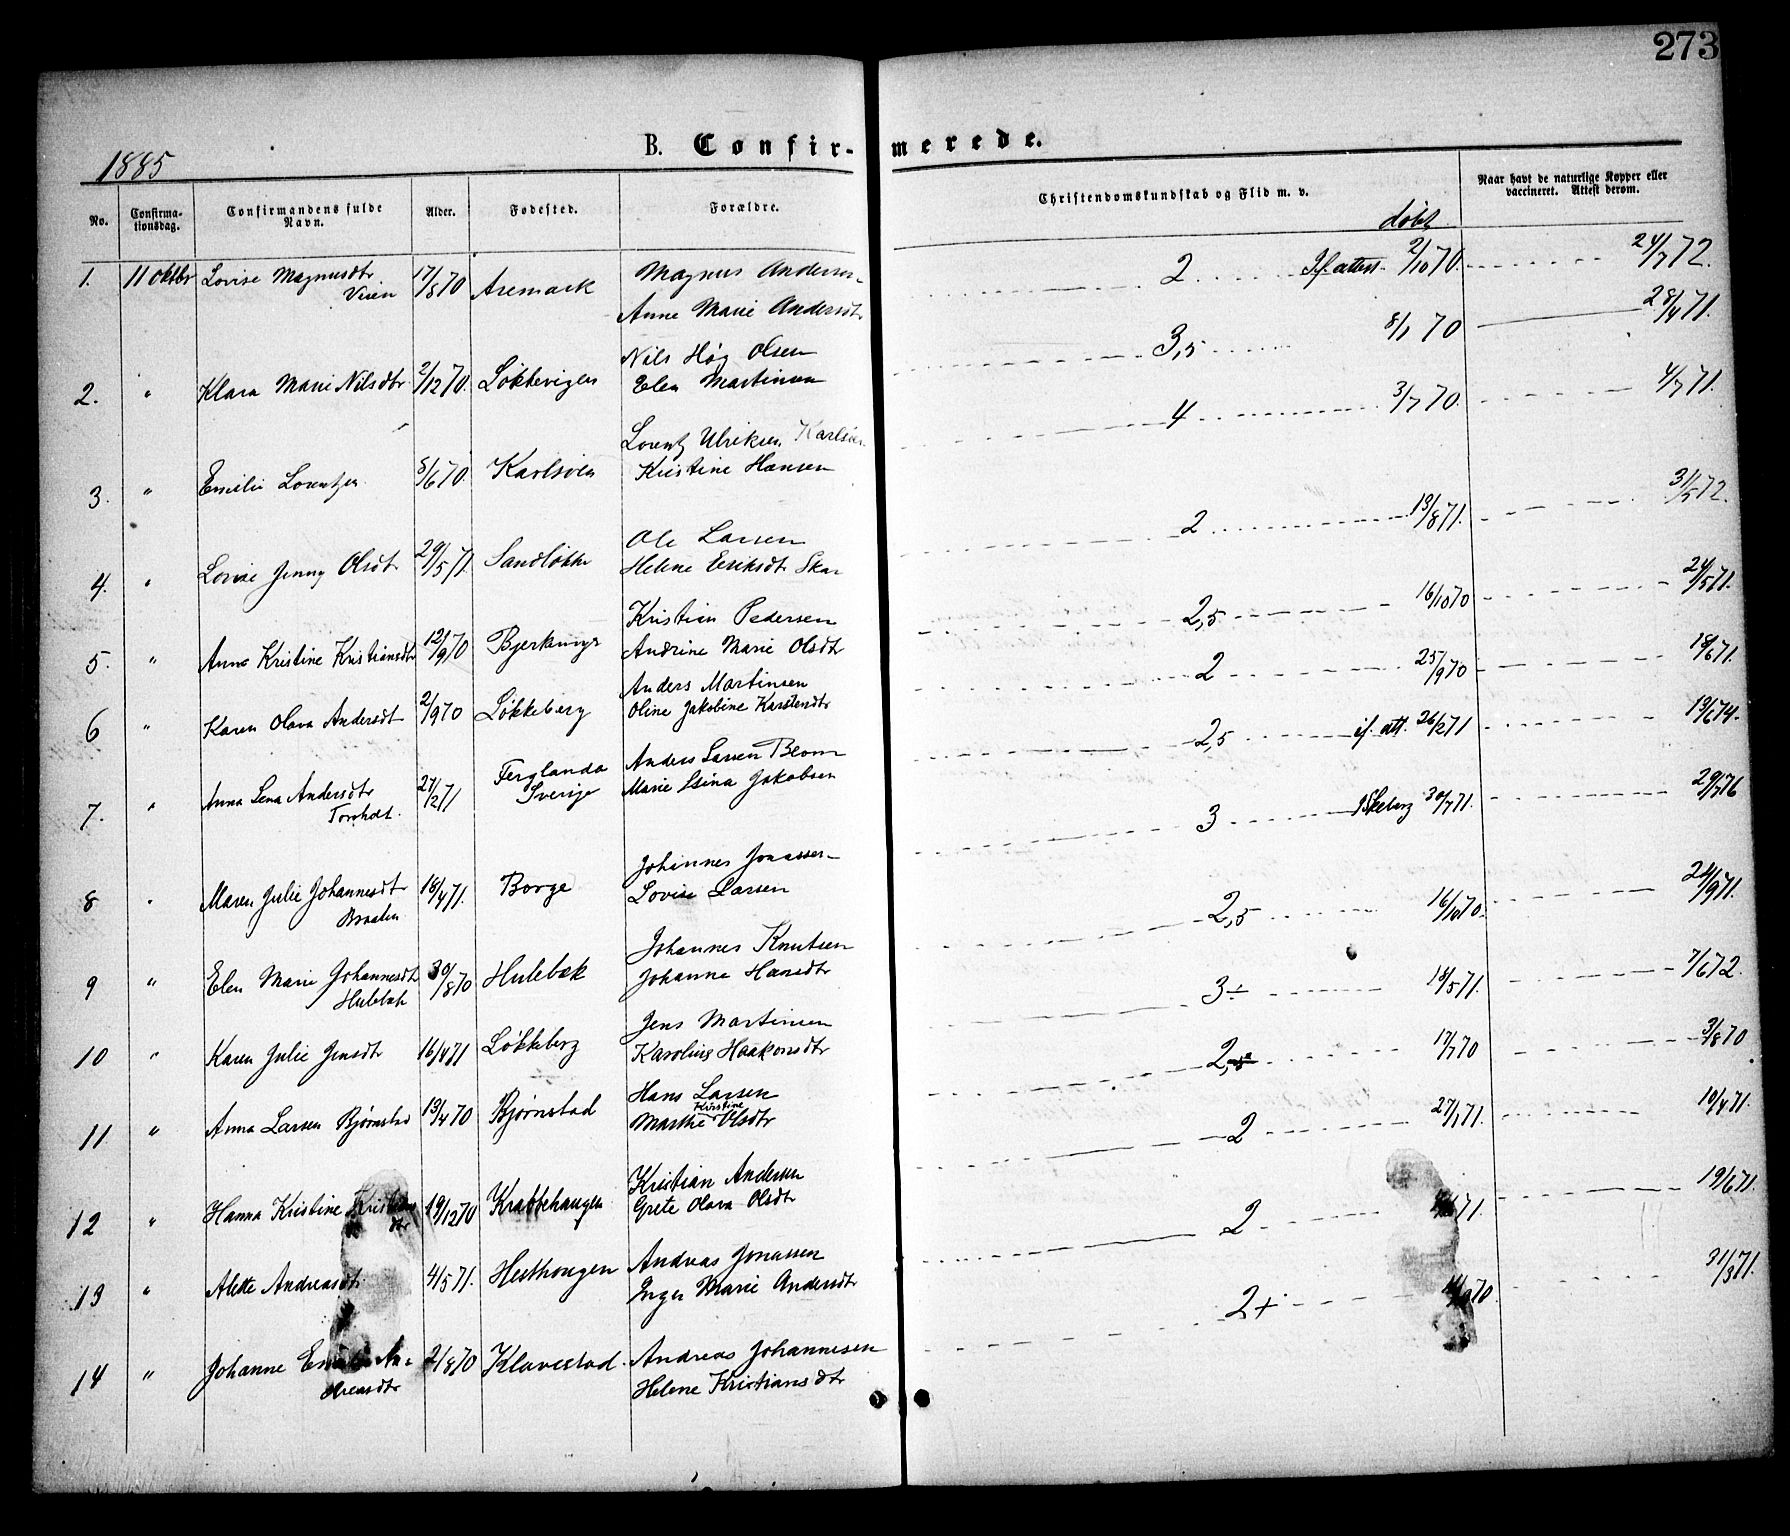 273
B. Confir-merede.
1885
No.
Confirma-
tionsdag.
Confirmandens fulde
Navn.
Alder.
Fødested.
Forældre.
Christendomskundskab og Flid m. v.
døbt
Naar havt de naturlige Kopper eller
vaccineret. Attest derom.
1. 11 oktbr Lovise Magnusdtr 17/8 70 Aremark Magnus Andersen 2 If. attest. 2/10 70. 24/7 72.
Anne Marie Andersdtr
2. " Klara Marie Nilsdtr. 2/12 70. Løkkevigen Nils Høg Olsen 3,5 8/1 70 28/4 71.
Elen Martinsen
3. " Emilie Lorentzen 5/6 70. Karlsøen Lorentz Ulriksen Karlsøen 4 3/7 70. 4/7 71.
Kristine Hansen
4. " Lovise Jenny Olsdt 29/5 71. Sandløkke Ole Larsen 2 13/8 71. 31/5 72.
Helene Eriksdt Skar
5. " Anna Kristine Kristiansdtr 12/9 70 Kristian Pedersen 2,5 16/10 70 24/5 71.
Andrine Marie Olsdt
6 " Karen Olava Andersdt 2/9 70 Løkkeberg Anders Martinsen 2 25/9 70 18/6 71.
Oline Jakobine Karstendtr
7. " Anna Lena Andersdtr 27/2 71 Ferglanda Anders Larsen Blom 2,5 if. att. 26/2 71 19/6 74.
Sverige Marie Stina Jakobsen
8 " Maren Julie Johannesdt 18/4 71. Borge Johannes Jonassen 3 I Skeberg 30/7 71. 29/7 76
Braaten Lovise Larsen
9 " Elen Marie Johannesdt 30/8 70 Hulebæk Johannes Knutsen 2,5 16/10 70. 24/9 71.
Hulebæk Johanne Hansdtr
10 " Karen Julie Jensdtr 16/4 71 Løkkeberg Jens Martinsen 3÷ 18/5 71. 7/6 72.
Karoline Haakonsdtr
11 " Anna Larsen Bjørnstad 13/4 70 Bjørnstad Hans Larsen 2,5 17/7 70 3/8 70
Marthe Kristine Olsdtr
12 " Hanna Kristine 19/12 70 Krabbehaugen Kristian Andersen 2 27/1 71. 10/4 71.
dtr Grete Olava Olsdtr
13 " Alette Andreasdtr 4/5 71. Hesthaugen Andreas Jonassen 2 71. 19/6 71.
Inger Marie Andersdtr
14 " Johanne 2/8 70 Klavestad Andreas Johannesen 2+ 70. 31/3 71.
dreasdtr Helene Kristiansdtr